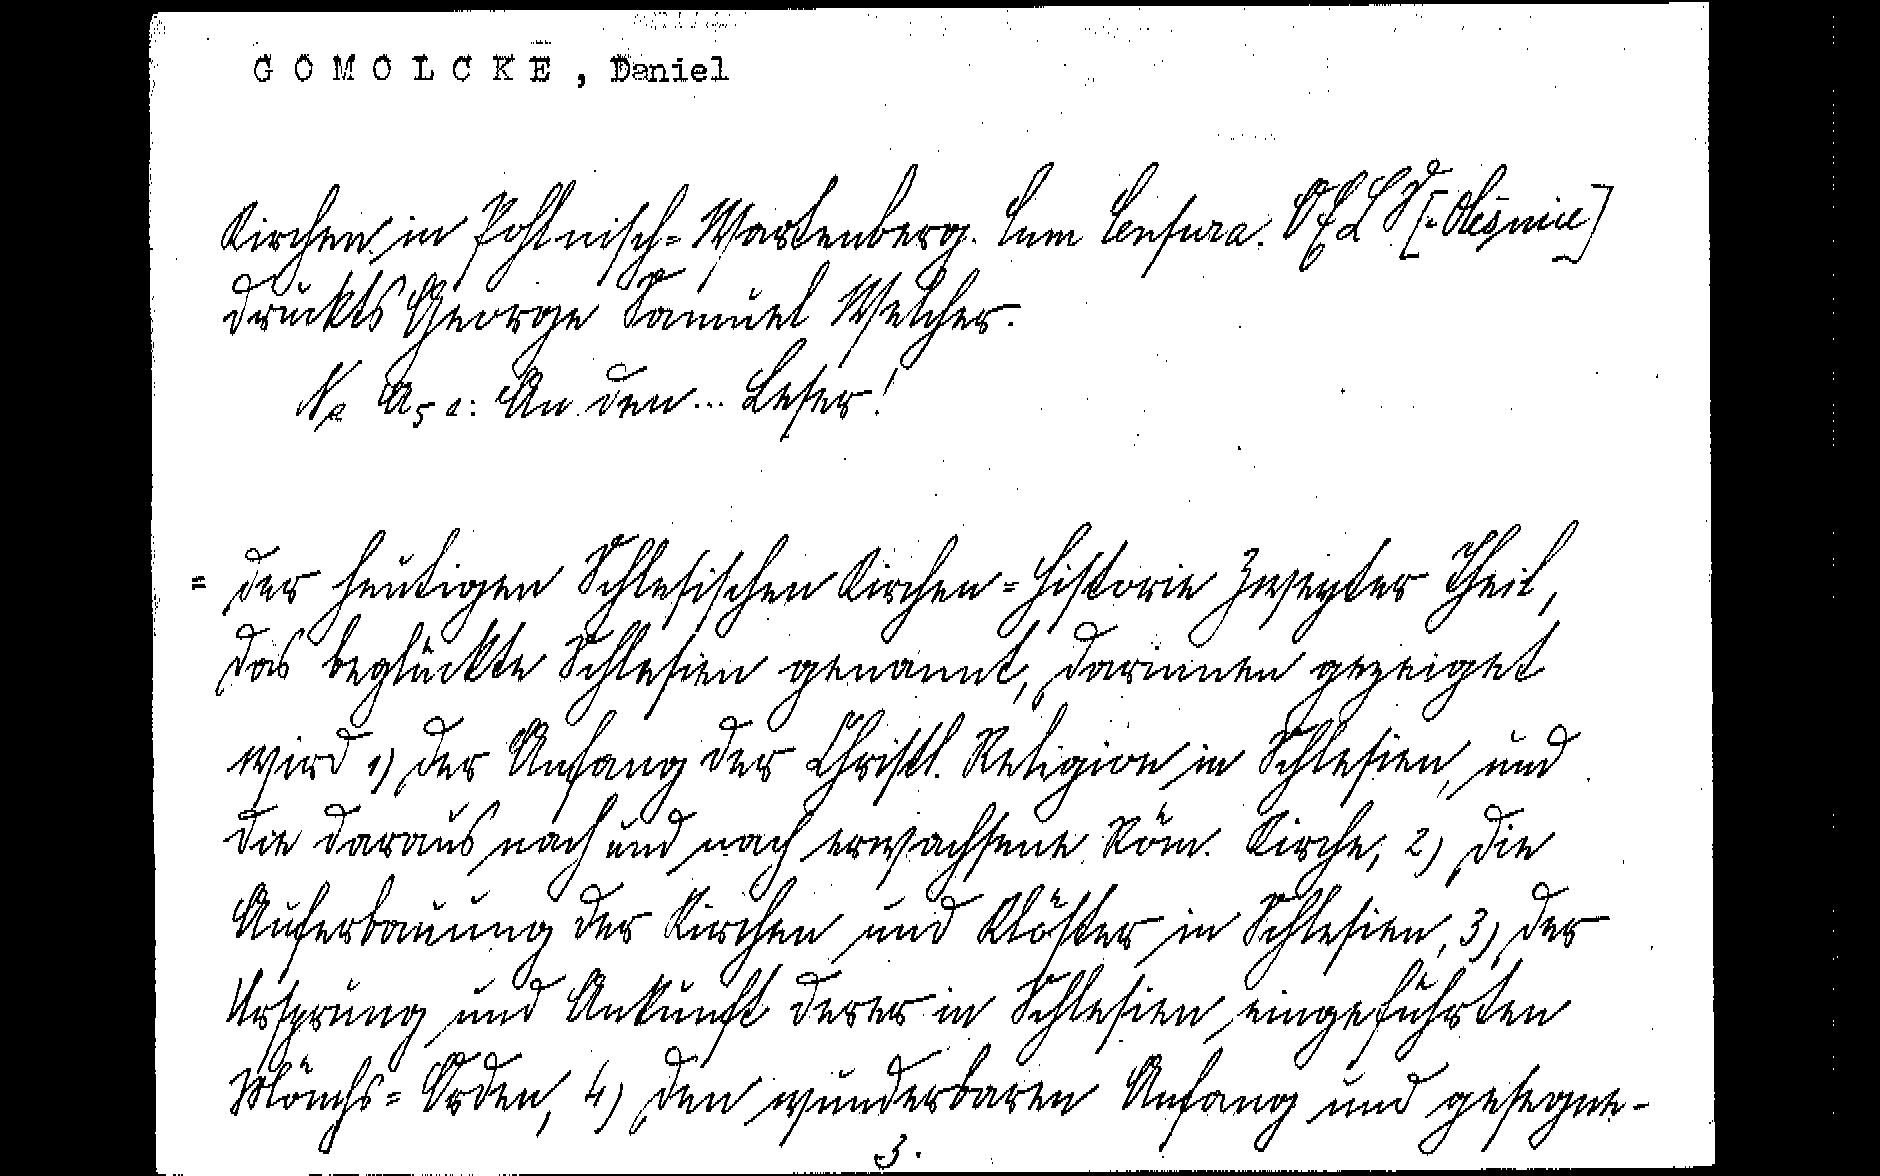 GOMOLCKE, Daniel
Kirchen in Pohlnisch=Wartenberg. Cum Censura. OELS [: Oleśnice]
druckts George Samuel Welcher.
Na A5 a: An den... Leser!
= der heutigen Schlesischen Kirchen=Historie Zweyter Theil,
das beglückte Schlesien genannt, darinnen gezeiget
wird 1) der Anfang der Christl. Religion in Schlesien, und
die daraus nach und nach erwachsene Röm. Kirche, 2) die
Auferbauung der Kirchen und Klöster in Schlesien, 3) der
Ursprung und Ankunft derer in Schlesien eingeführten
Mönchs=Orden, 4) den wunderbaren Anfang und gesegne-
3.